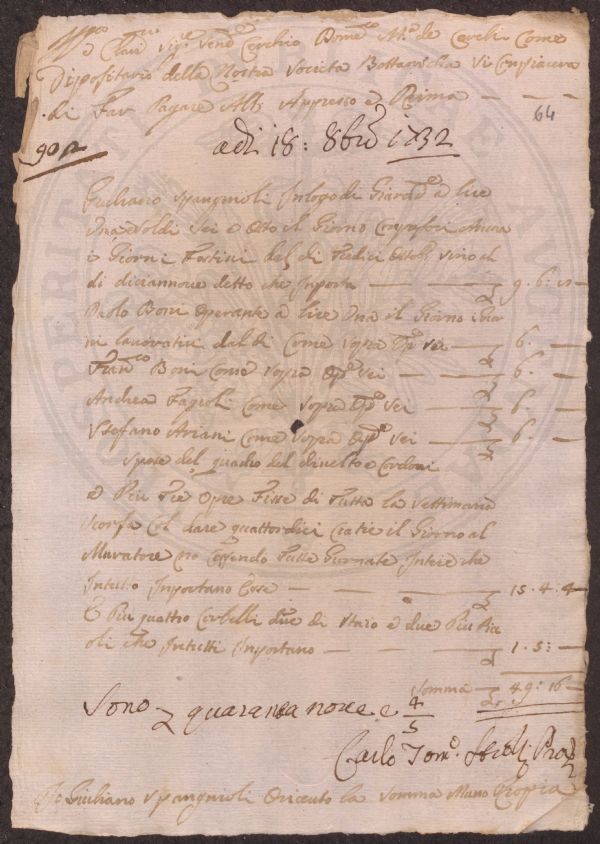 e Clari Sig.e Vend.e Cerchio Dom.co M.a de Cerchi Come
Dipositario della Nostra Societa Bottanicha Vi Conpiacera
di Far Pagare Alli Appresso e Prima
64
adi 18: 8bre 1732
90
Guliano Spangnioli In logo di Giarde e lire
Una e Soldi Sei e Otto il Giorno Conpresovi Ancora
i Giorni Festivi dal di Tredici Ottobre Sino al
di diciannove detto che Inporta — 9 . 6 :
Paolo Boni Operante a lire Una il Giorno
ni lauorativi dal di Come Sopra Op.e Sei — 6 . —
Fran.co Boni Come Sopra Op.e Sei — 6 . —
Andrea Fagioli Come Sopra Op.e Sei — 6 . —
Stefano Ariani Come Sopra Op.e Sei — 6 . —
Spese del quadro del divelto e Cordoni
E Piu Tre Opre Fisse di Tutta la Settimana
Scorsa Col dare quattordici Cratie il Giorno al
Muratore no Essendo Tutte Giornate Intere che
Intutto Inportano Cose — 15 . 4 . 4
E Piu quattro Corbelli due di Staro e due Piu Pic
oli che Intutti Inportano — 1 . 5 : —
Somma — 49 : 16 —
Sono quaranta nove e 4/5
Carlo Tom.o
Io Giuliano Spangnioli O riceuto la Somma Mano Propia